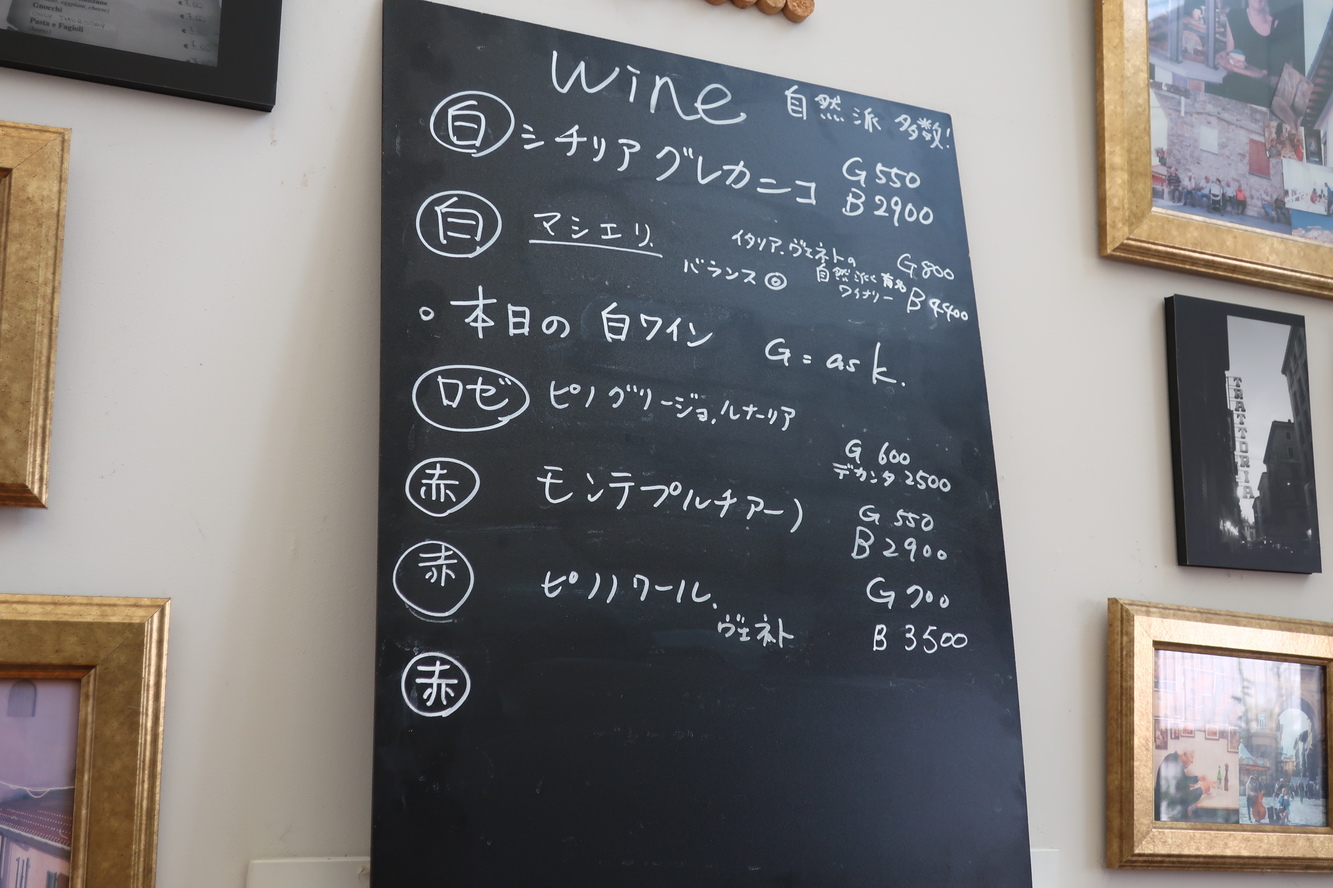 Gnocchi
Pasta e Fagioli
wine 自然派 多数!
白 シチリア グレカニコ G 550
B 2900
白 マシエリ. イタリア.ヴェネトの G 800
バランス◎ 自然派で有名
ワイナリー B 4400
○ 本日の 白ワイン G = ask.
ロゼ ピノグリージョ.ルナーリア
G 600
デカンタ 2500
赤 モンテプルチアーノ G 550
B 2900
赤 ピノノワール. G 700
ヴェネト B 3500
赤
TRATTORIA